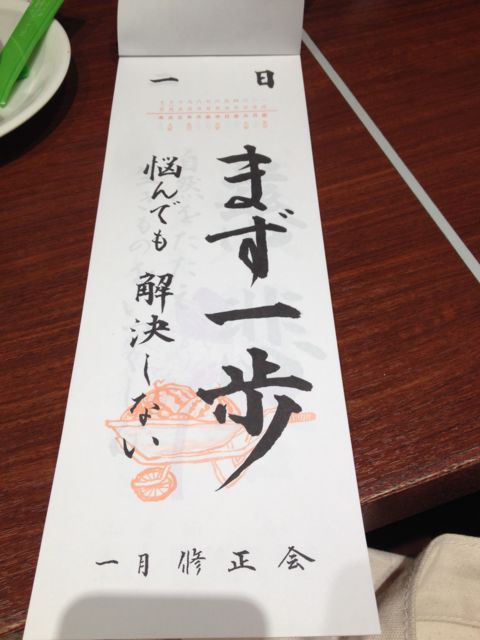 一日
まず一歩
悩んでも解決しない
一月修正会